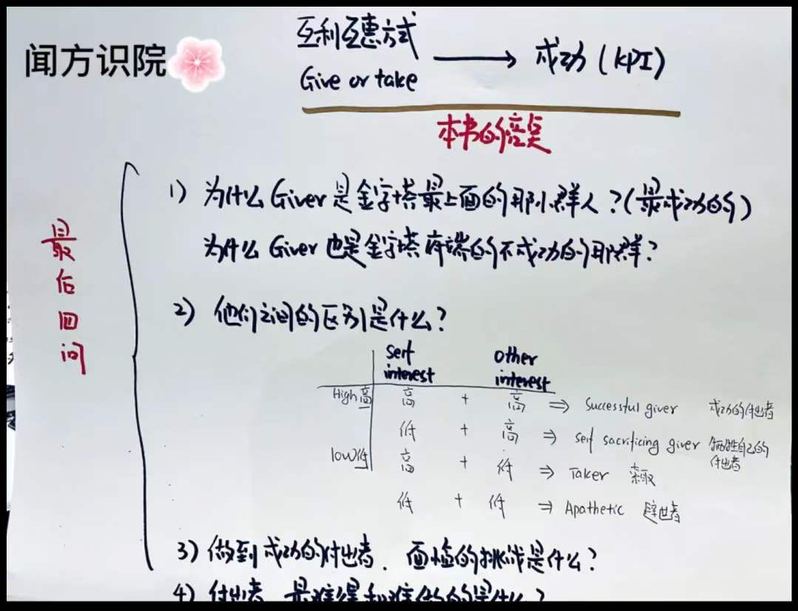 闻方识院
互利互惠方式
Give or take
成功 (KPI)
本书的
最后四问
1) 为什么 Giver 是金字塔最上面的那小群人?(最成功的)
为什么 Giver 也是金字塔底端的不成功的那群?
2) 他们之间的区别是什么?
self interest
other interest
High 高
高 + 高 ⇒ Successful giver 成功的付出者
低 + 高 ⇒ self sacrificing giver 牺牲自己的付出者
low 低
高 + 低 ⇒ Taker 索取
低 + 低 ⇒ Apathetic 避世者
3) 做到成功的付出者, 面临的挑战是什么?
4) 付出者, 最难得和难做的是什么?